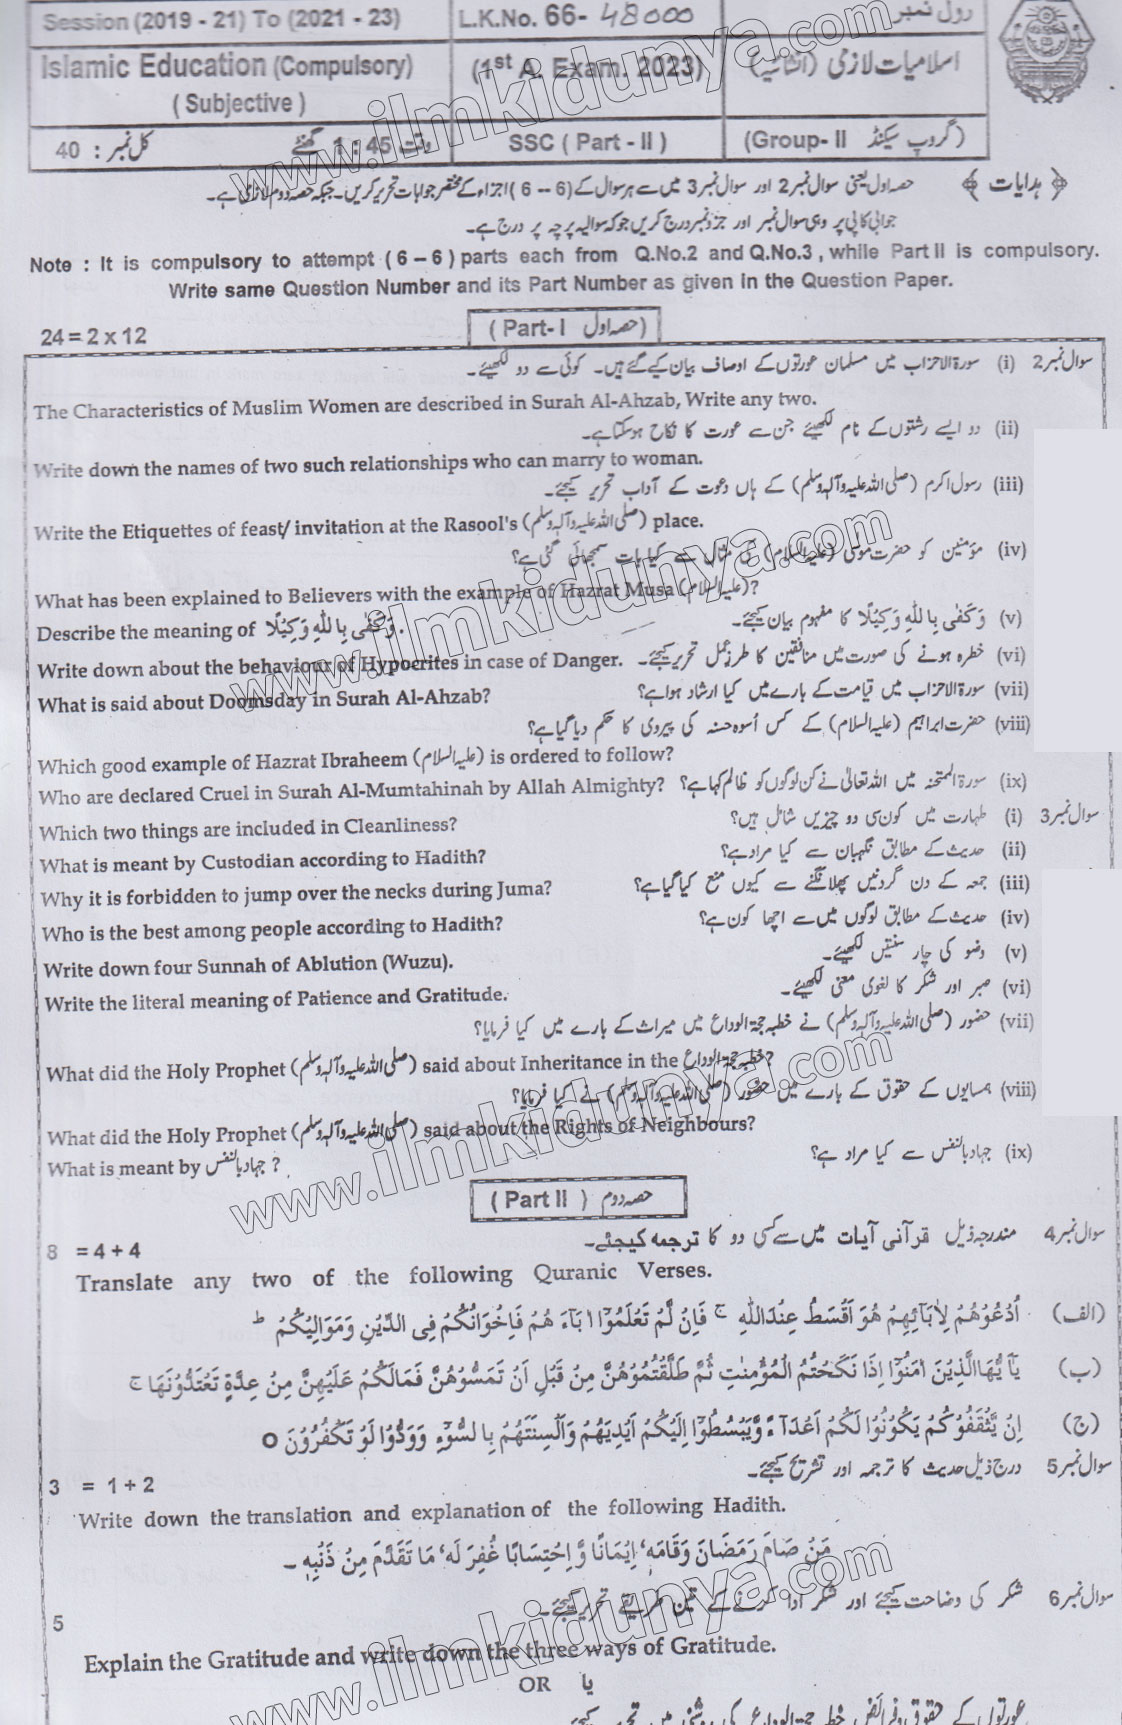 Session (2019 - 21) To (2021 - 23) L.K.No. 66- 48000 رول نمبر
Islamic Education (Compulsory) (1st A. Exam. 2023) اسلامیات لازمی (انشائیہ)
(Subjective)
کل نمبر : 40 وقت 1 : 45 گھنٹے SSC ( Part - II ) (Group- II گروپ سیکنڈ)
﴿ ہدایات ﴾ حصہ اول یعنی سوال نمبر 2 اور سوال نمبر 3 میں سے ہر سوال کے (6 – 6) اجزاء کے مختصر جوابات تحریر کریں۔ جبکہ حصہ دوم لازمی ہے۔
جوابی کاپی پر وہی سوال نمبر اور جزو نمبر درج کریں جو کہ سوالیہ پرچہ پر درج ہے۔
Note : It is compulsory to attempt ( 6 – 6 ) parts each from Q.No.2 and Q.No.3 , while Part II is compulsory.
Write same Question Number and its Part Number as given in the Question Paper.
24 = 2 x 12 ( Part- I حصہ اول)
سوال نمبر 2 (i) سورۃ الاحزاب میں مسلمان عورتوں کے اوصاف بیان کیے گئے ہیں۔ کوئی سے دو لکھیئے۔
The Characteristics of Muslim Women are described in Surah Al-Ahzab, Write any two.
(ii) دو ایسے رشتوں کے نام لکھیئے جن سے عورت کا نکاح ہوسکتا ہے۔
Write down the names of two such relationships who can marry to woman.
(iii) رسول اکرم (صلی اللہ علیہ وآلہ وسلم) کے ہاں دعوت کے آداب تحریر کیجئے۔
Write the Etiquettes of feast/ invitation at the Rasool's (صلی اللہ علیہ وآلہ وسلم) place.
(iv) مؤمنین کو حضرت موسیٰ (علیہ السلام) کی مثال سے کیا بات سمجھائی گئی ہے؟
What has been explained to Believers with the example of Hazrat Musa (علیہ السلام)?
Describe the meaning of وَكَفٰى بِاللّٰهِ وَكِيْلًا . (v) وَكَفٰى بِاللّٰهِ وَكِيْلًا کا مفہوم بیان کیجئے۔
Write down about the behaviour of Hypocrites in case of Danger. (vi) خطرہ ہونے کی صورت میں منافقین کا طرزِ عمل تحریر کیجئے۔
What is said about Doomsday in Surah Al-Ahzab? (vii) سورۃ الاحزاب میں قیامت کے بارے میں کیا ارشاد ہوا ہے؟
(viii) حضرت ابراہیم (علیہ السلام) کے کس اُسوہ حسنہ کی پیروی کا حکم دیا گیا ہے؟
Which good example of Hazrat Ibraheem (علیہ السلام) is ordered to follow?
Who are declared Cruel in Surah Al-Mumtahinah by Allah Almighty? (ix) سورۃ الممتحنہ میں اللہ تعالیٰ نے کن لوگوں کو ظالم کہا ہے؟
Which two things are included in Cleanliness? سوال نمبر 3 (i) طہارت میں کون سی دو چیزیں شامل ہیں؟
What is meant by Custodian according to Hadith? (ii) حدیث کے مطابق نگہبان سے کیا مراد ہے؟
Why it is forbidden to jump over the necks during Juma? (iii) جمعہ کے دن گردنیں پھلانگنے سے کیوں منع کیا گیا ہے؟
Who is the best among people according to Hadith? (iv) حدیث کے مطابق لوگوں میں سے اچھا کون ہے؟
Write down four Sunnah of Ablution (Wuzu). (v) وضو کی چار سنتیں لکھیئے۔
Write the literal meaning of Patience and Gratitude. (vi) صبر اور شکر کا لغوی معنی لکھیئے۔
(vii) حضور (صلی اللہ علیہ وآلہ وسلم) نے خطبہ حجۃ الوداع میں میراث کے بارے میں کیا فرمایا؟
What did the Holy Prophet (صلی اللہ علیہ وآلہ وسلم) said about Inheritance in the خطبہ حجۃ الوداع?
(viii) ہمسایوں کے حقوق کے بارے میں حضور (صلی اللہ علیہ وآلہ وسلم) نے کیا فرمایا؟
What did the Holy Prophet (صلی اللہ علیہ وآلہ وسلم) said about the Rights of Neighbours?
What is meant by جہاد بالنفس ? (ix) جہاد بالنفس سے کیا مراد ہے؟
( Part II حصہ دوم )
8 = 4 + 4 سوال نمبر 4 مندرجہ ذیل قرآنی آیات میں سے کسی دو کا ترجمہ کیجئے۔
Translate any two of the following Quranic Verses.
(الف) اُدْعُوْهُمْ لِاٰبَآئِهِمْ هُوَ اَقْسَطُ عِنْدَاللّٰهِ ۚ فَاِنْ لَّمْ تَعْلَمُوْٓا اٰبَآءَ هُمْ فَاِخْوَانُكُمْ فِى الدِّيْنِ وَمَوَالِيْكُمْ ؕ
(ب) يٰٓاَيُّهَاالَّذِيْنَ اٰمَنُوْٓا اِذَا نَكَحْتُمُ الْمُؤْمِنٰتِ ثُمَّ طَلَّقْتُمُوْهُنَّ مِنْ قَبْلِ اَنْ تَمَسُّوْهُنَّ فَمَالَكُمْ عَلَيْهِنَّ مِنْ عِدَّةٍ تَعْتَدُّوْنَهَا ۚ
(ج) اِنْ يَّثْقَفُوْكُمْ يَكُوْنُوْا لَكُمْ اَعْدَآءً وَّيَبْسُطُوْٓا اِلَيْكُمْ اَيْدِيَهُمْ وَاَلْسِنَتَهُمْ بِالسُّوْٓءِ وَوَدُّوْا لَوْ تَكْفُرُوْنَ o
3 = 1 + 2 سوال نمبر 5 درج ذیل حدیث کا ترجمہ اور تشریح کیجئے۔
Write down the translation and explanation of the following Hadith.
مَنْ صَامَ رَمَضَانَ وَقَامَهٗ اِيْمَانًا وَّاِحْتِسَابًا غُفِرَ لَهٗ مَا تَقَدَّمَ مِنْ ذَنْبِهٖ ۔
5 سوال نمبر 6 شکر کی وضاحت کیجئے اور شکر ادا کرنے کے تین طریقے تحریر کیجئے۔
Explain the Gratitude and write down the three ways of Gratitude.
OR یا
عورتوں کے حقوق و فرائض خطبہ حجۃ الوداع کی روشنی میں تحریر کیجئے
www.ilmkidunya.com
www.ilmkidunya.com
www.ilmkidunya.com
www.ilmkidunya.com